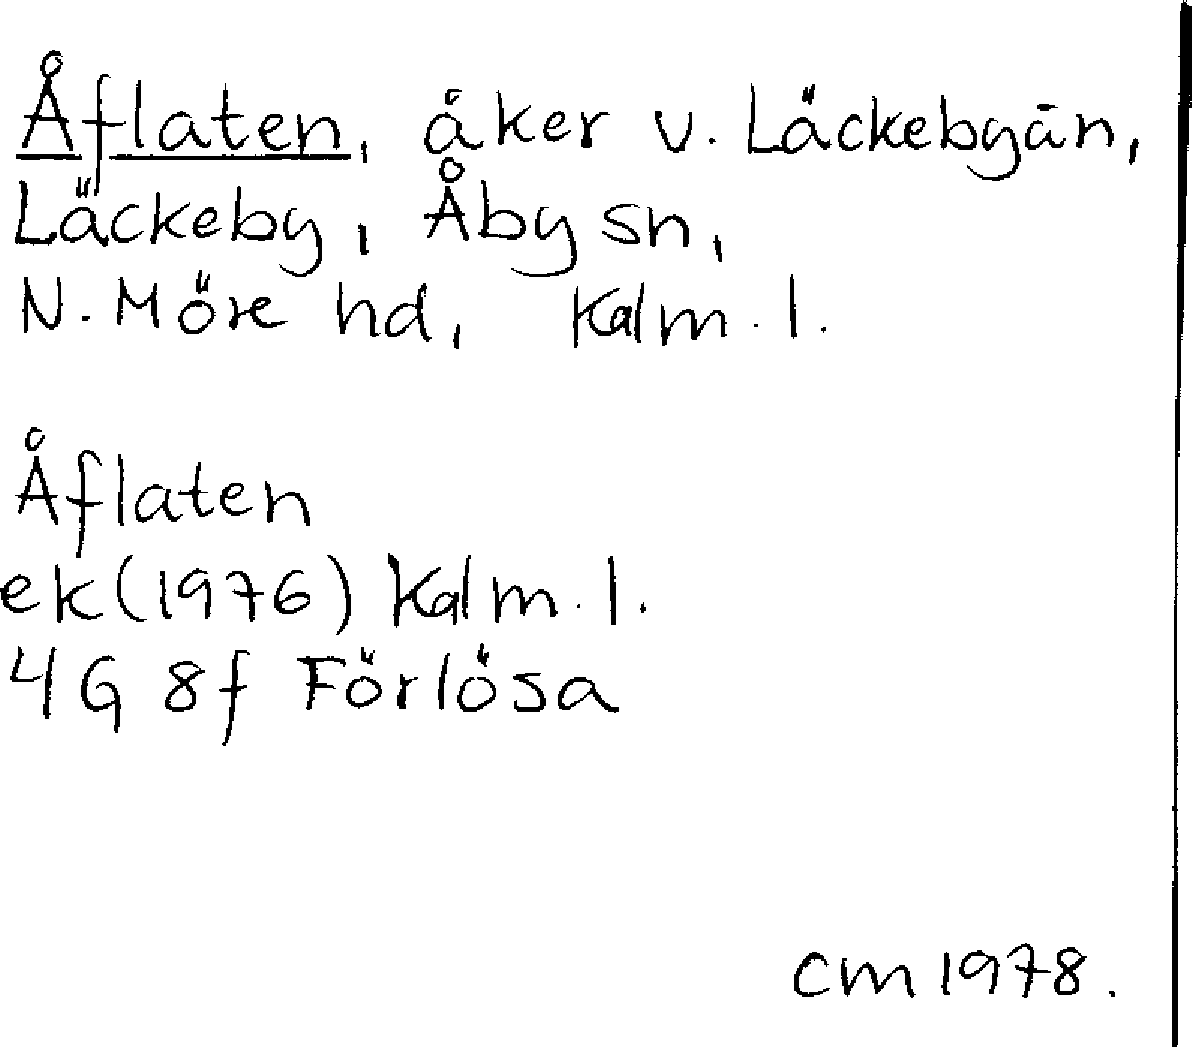 Åflaten, åker v. Läckebyån,
Läckeby, Åby sn,
N. Möre hd, Kalm. l.
Åflaten
ek (1976) Kalm. l.
4G 8f Förlösa
CM 1978.